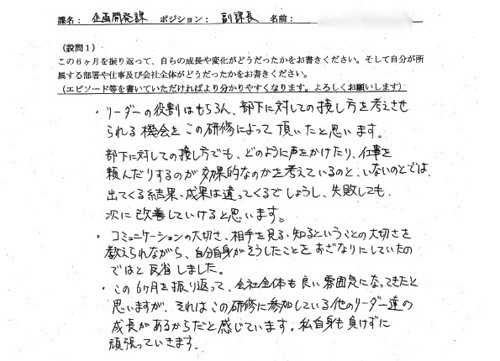 課名： 企画開発課 ポジション： 副課長 名前：
（設問１）
この６ヶ月を振り返って、自らの成長や変化がどうだったかをお書きください。そして自分が所
属する部署や仕事及び会社全体がどうだったかをお書きください。
（エピソード等を書いていただければより分かりやすくなります。よろしくお願いします）
・リーダーの役割はもちろん、部下に対しての接し方を考えさせ
られる機会をこの研修によって頂いたと思います。
部下に対しての接し方でも、どのように声をかけたり、仕事を
頼んだりするのが効果的なのかを考えているのと、いないのとでは、
出てくる結果・成果は違ってくるでしょうし、失敗しても、
次に改善していけると思います。
・コミュニケーションの大切さ、相手を見る・知るということの大切さを
教えられながら、自分自身がそうしたことをおざなりにしていたの
ではと反省しました。
・この６ケ月を振り返って、会社全体も良い雰囲気になってきたと
思いますが、それはこの研修に参加している他のリーダー達の
成長があるからだと感じています。私自身も負けずに
頑張っていきます。